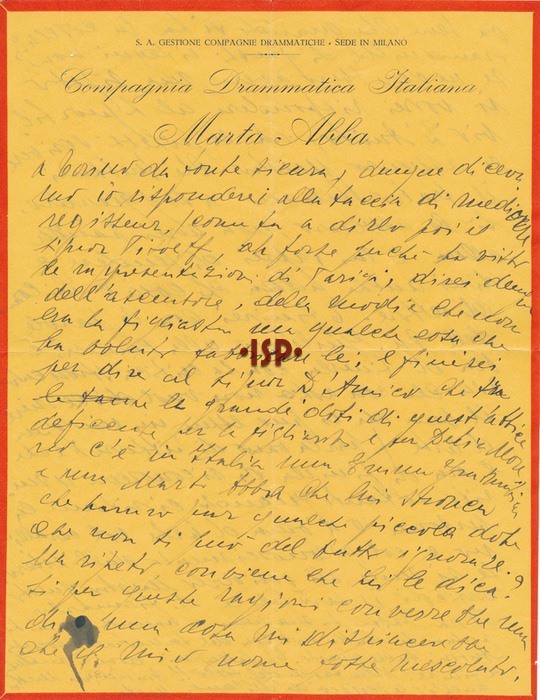 S. A. GESTIONE COMPAGNIE DRAMMATICHE - SEDE IN MILANO
Compagnia Drammatica Italiana
Marta Abba
a Torino da fonte sicura, dunque dicevo
io risponderei alla faccia di mediocre
regisseur, come fa a dirlo poi il
signor Pitoëff, ah forse perchè ha visto
le rappresentazioni di Parigi, direi
dell'assenture, della modia che non
era la figliastra ma qualche cosa che
ha voluto lei, e finirei
per dire al signor D'Amico che tra
le grandi doti di quest'attrice
deficente per la figliastra e per
c'è in Italia una Emma Gramatica
e una Marta Abba che lui stronca
che hanno una qualche piccola dote
che non si può del tutto ignorare.
Ma ripeto conviene che lei le dica?
Si per queste ragioni converrebbe
di una cosa mi dispiacerebbe
che il mio nome fosse mescolato,
•ISP•